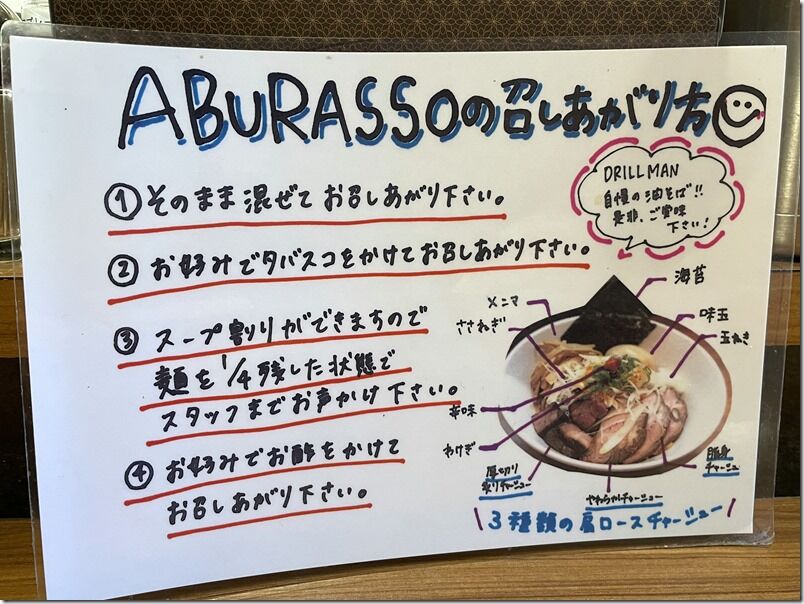 ABURASSOの召しあがり方
DRILLMAN
自慢の油そば!!
是非、ご賞味
下さい!
① そのまま混ぜてお召しあがり下さい。
② お好みでタバスコをかけてお召しあがり下さい。
③ スープ割りができますので
麺を1/4残した状態で
スタッフまでお声かけ下さい。
④ お好みでお酢をかけて
お召しあがり下さい。
海苔
メンマ
ささねぎ
味玉
玉ねぎ
辛味
わけぎ
厚切り
炙りチャーシュー
やわらかチャーシュー
チャーシュー
3種類の肩ロースチャーシュー